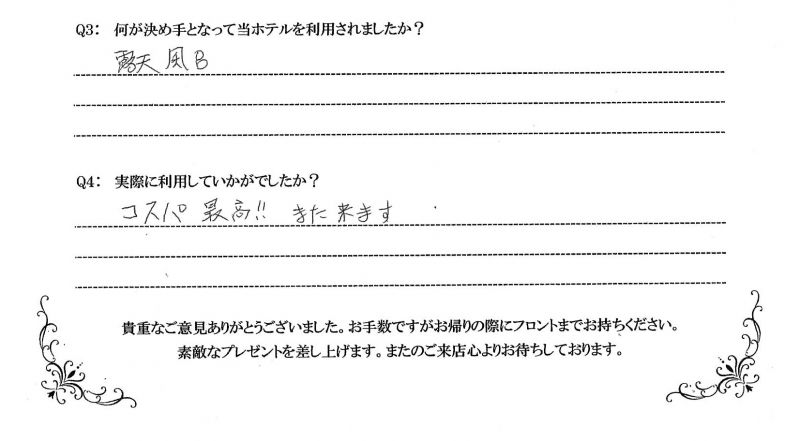 Q3: 何が決め手となって当ホテルを利用されましたか？
露天風呂
Q4: 実際に利用していかがでしたか？
コスパ 最高!! また来ます
貴重なご意見ありがとうございました。お手数ですがお帰りの際にフロントまでお持ちください。
素敵なプレゼントを差し上げます。またのご来店心よりお待ちしております。